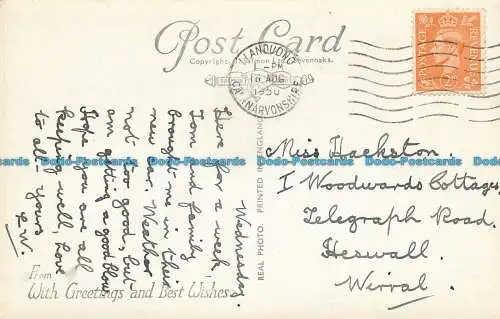 Post Card
Copyright, Salmon Ltd., Sevenoaks.
LLANDUDNO
PM
8 AUG
1950
CAERNARVONSHIRE
POSTAGE
REVENUE
Wednesday.
Here for a week,
Tom and family
brought me in their
new car. Weather
not too good, but
am getting a good blow
Hope you are all
keeping well, Love
to all - yours
L.W.
From
With Greetings and Best Wishes
REAL PHOTO. PRINTED IN ENGLAND
Miss Hackston
1 Woodwards Cottages,
Telegraph Road.
Heswall.
Wirral.
Dado-Postcards Dado-Postcards Dado-Postcards Dado-Postcards